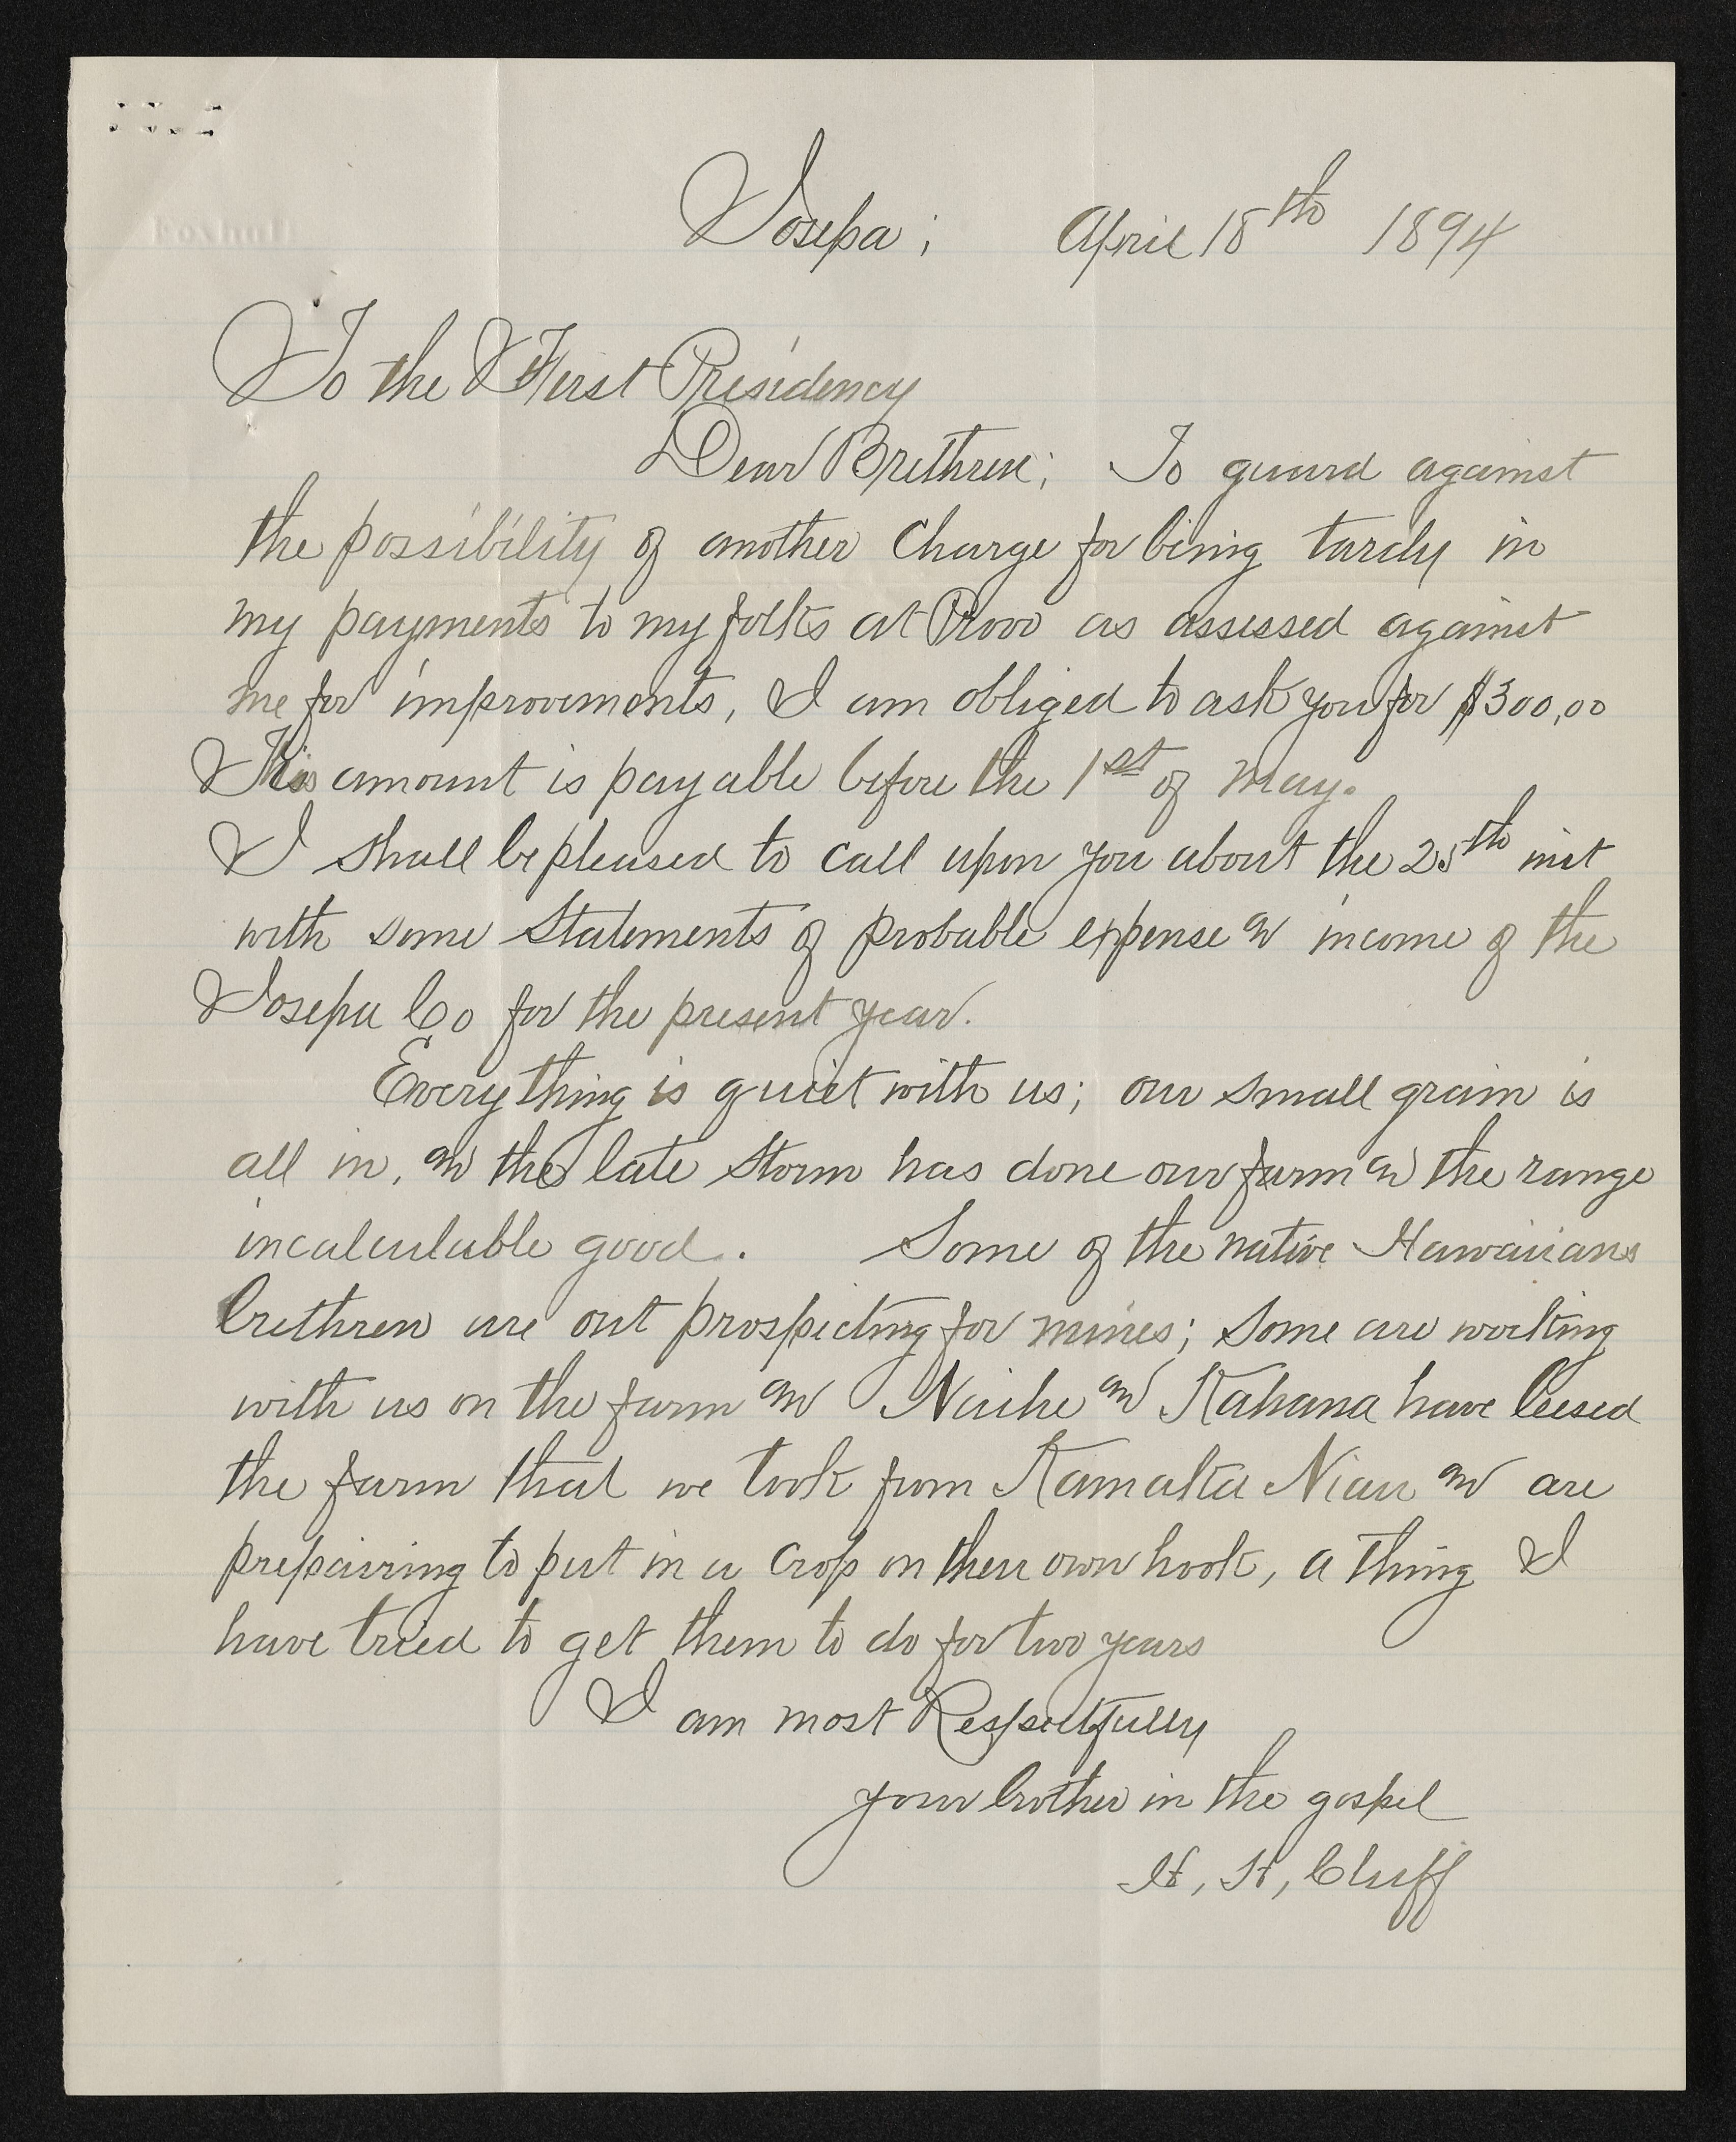 Iosepa; April 18th 1894
To the First Presidency
Dear Brethren; To guard against
the possibility of another Charge for being tardy in
my payments to my folks at Provo as assessed against
me for improvements, I am obliged to ask you for $300,00
This amount is payable before the 1st of May.
I shall be pleased to call upon you about the 25th inst
with some Statements of probable expense & income of the
Iosepa Co for the present year.
Everything is quiet with us; our small grain is
all in, & the late Storm has done our farm & the range
incalculable good. Some of the native Hawaiians
brethren are out prospecting for mines; Some are working
with us on the farm & Naihe & Kahana have leesed
the farm that we took from Kamaka Niau & are
prepairing to put in a Crop on their own hook, a thing I
have tried to get them to do for two years
I am most Respectfully
your brother in the gospel
H, H, Cluff